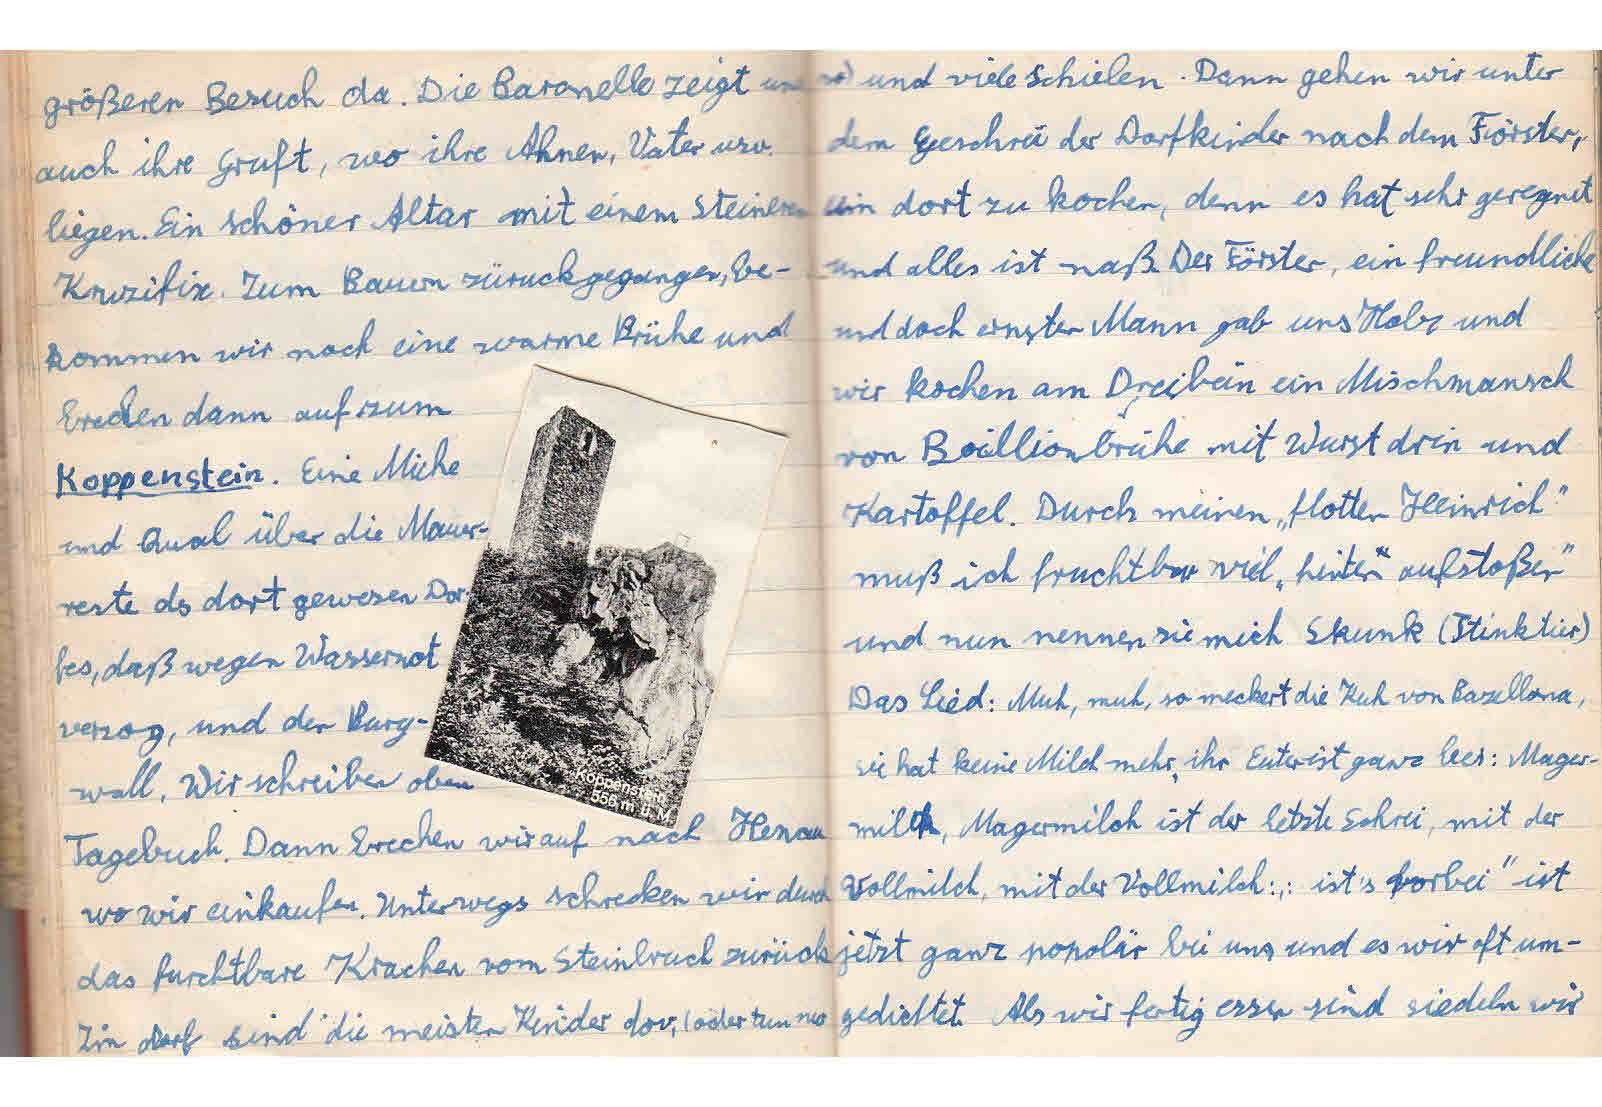 größeren Besuch da. Die Baronelle zeigt uns
auch ihre Gruft, wo ihre Ahnen, Vater usw.
liegen. Ein schöner Altar mit einem steineren
Kruzifix. Zum Bauern zürückgegangen, be-
kommen wir noch eine warme Brühe und
brechen dann auf zum
Koppenstein. Eine Mühe
und Qual über die Mauer-
reste ds dort gewesen Dor-
fes, daß wegen Wassernot
verzog, und den Burg-
wall. Wir schreiben oben
Tagebuch. Dann brechen wir auf nach Henau
wo wir einkaufen. Unterwegs schrecken wir durch
das furchtbare Krachen vom Steinbruch zurück
Im Dorf sind die meisten Kinder dov, (oder tun nur
Koppenstein
556 m ü. M.
so) und viele schielen. Dann gehen wir unter
dem Geschrei der Dorfkinder nach dem Förster,
um dort zu kochen, denn es hat sehr geregnet
und alles ist naß. Der Förster, ein freundliche
und doch ernster Mann gab uns Holz und
wir kochen am Dreibein ein Mischmansch
von Boillionbrühe mit Wurst drin und
Kartoffel. Durch meinen „flotten Heinrich"
muß ich fruchtbar viel „hinten aufstoßen"
und nun nennen sie mich Skunk (Stinktier)
Das Lied: Muh, muh, so meckert die Kuh von Bazellona,
sie hat keine Milch mehr, ihr Euter ist ganz leer: Mager-
milch, Magermilch ist der letzte Schrei, mit der
Vollmilch, mit der Vollmilch:,: ist's vorbei" ist
jetzt ganz populär bei uns und es wir oft um-
gedichtet. Als wir fertig essen sind siedeln wir